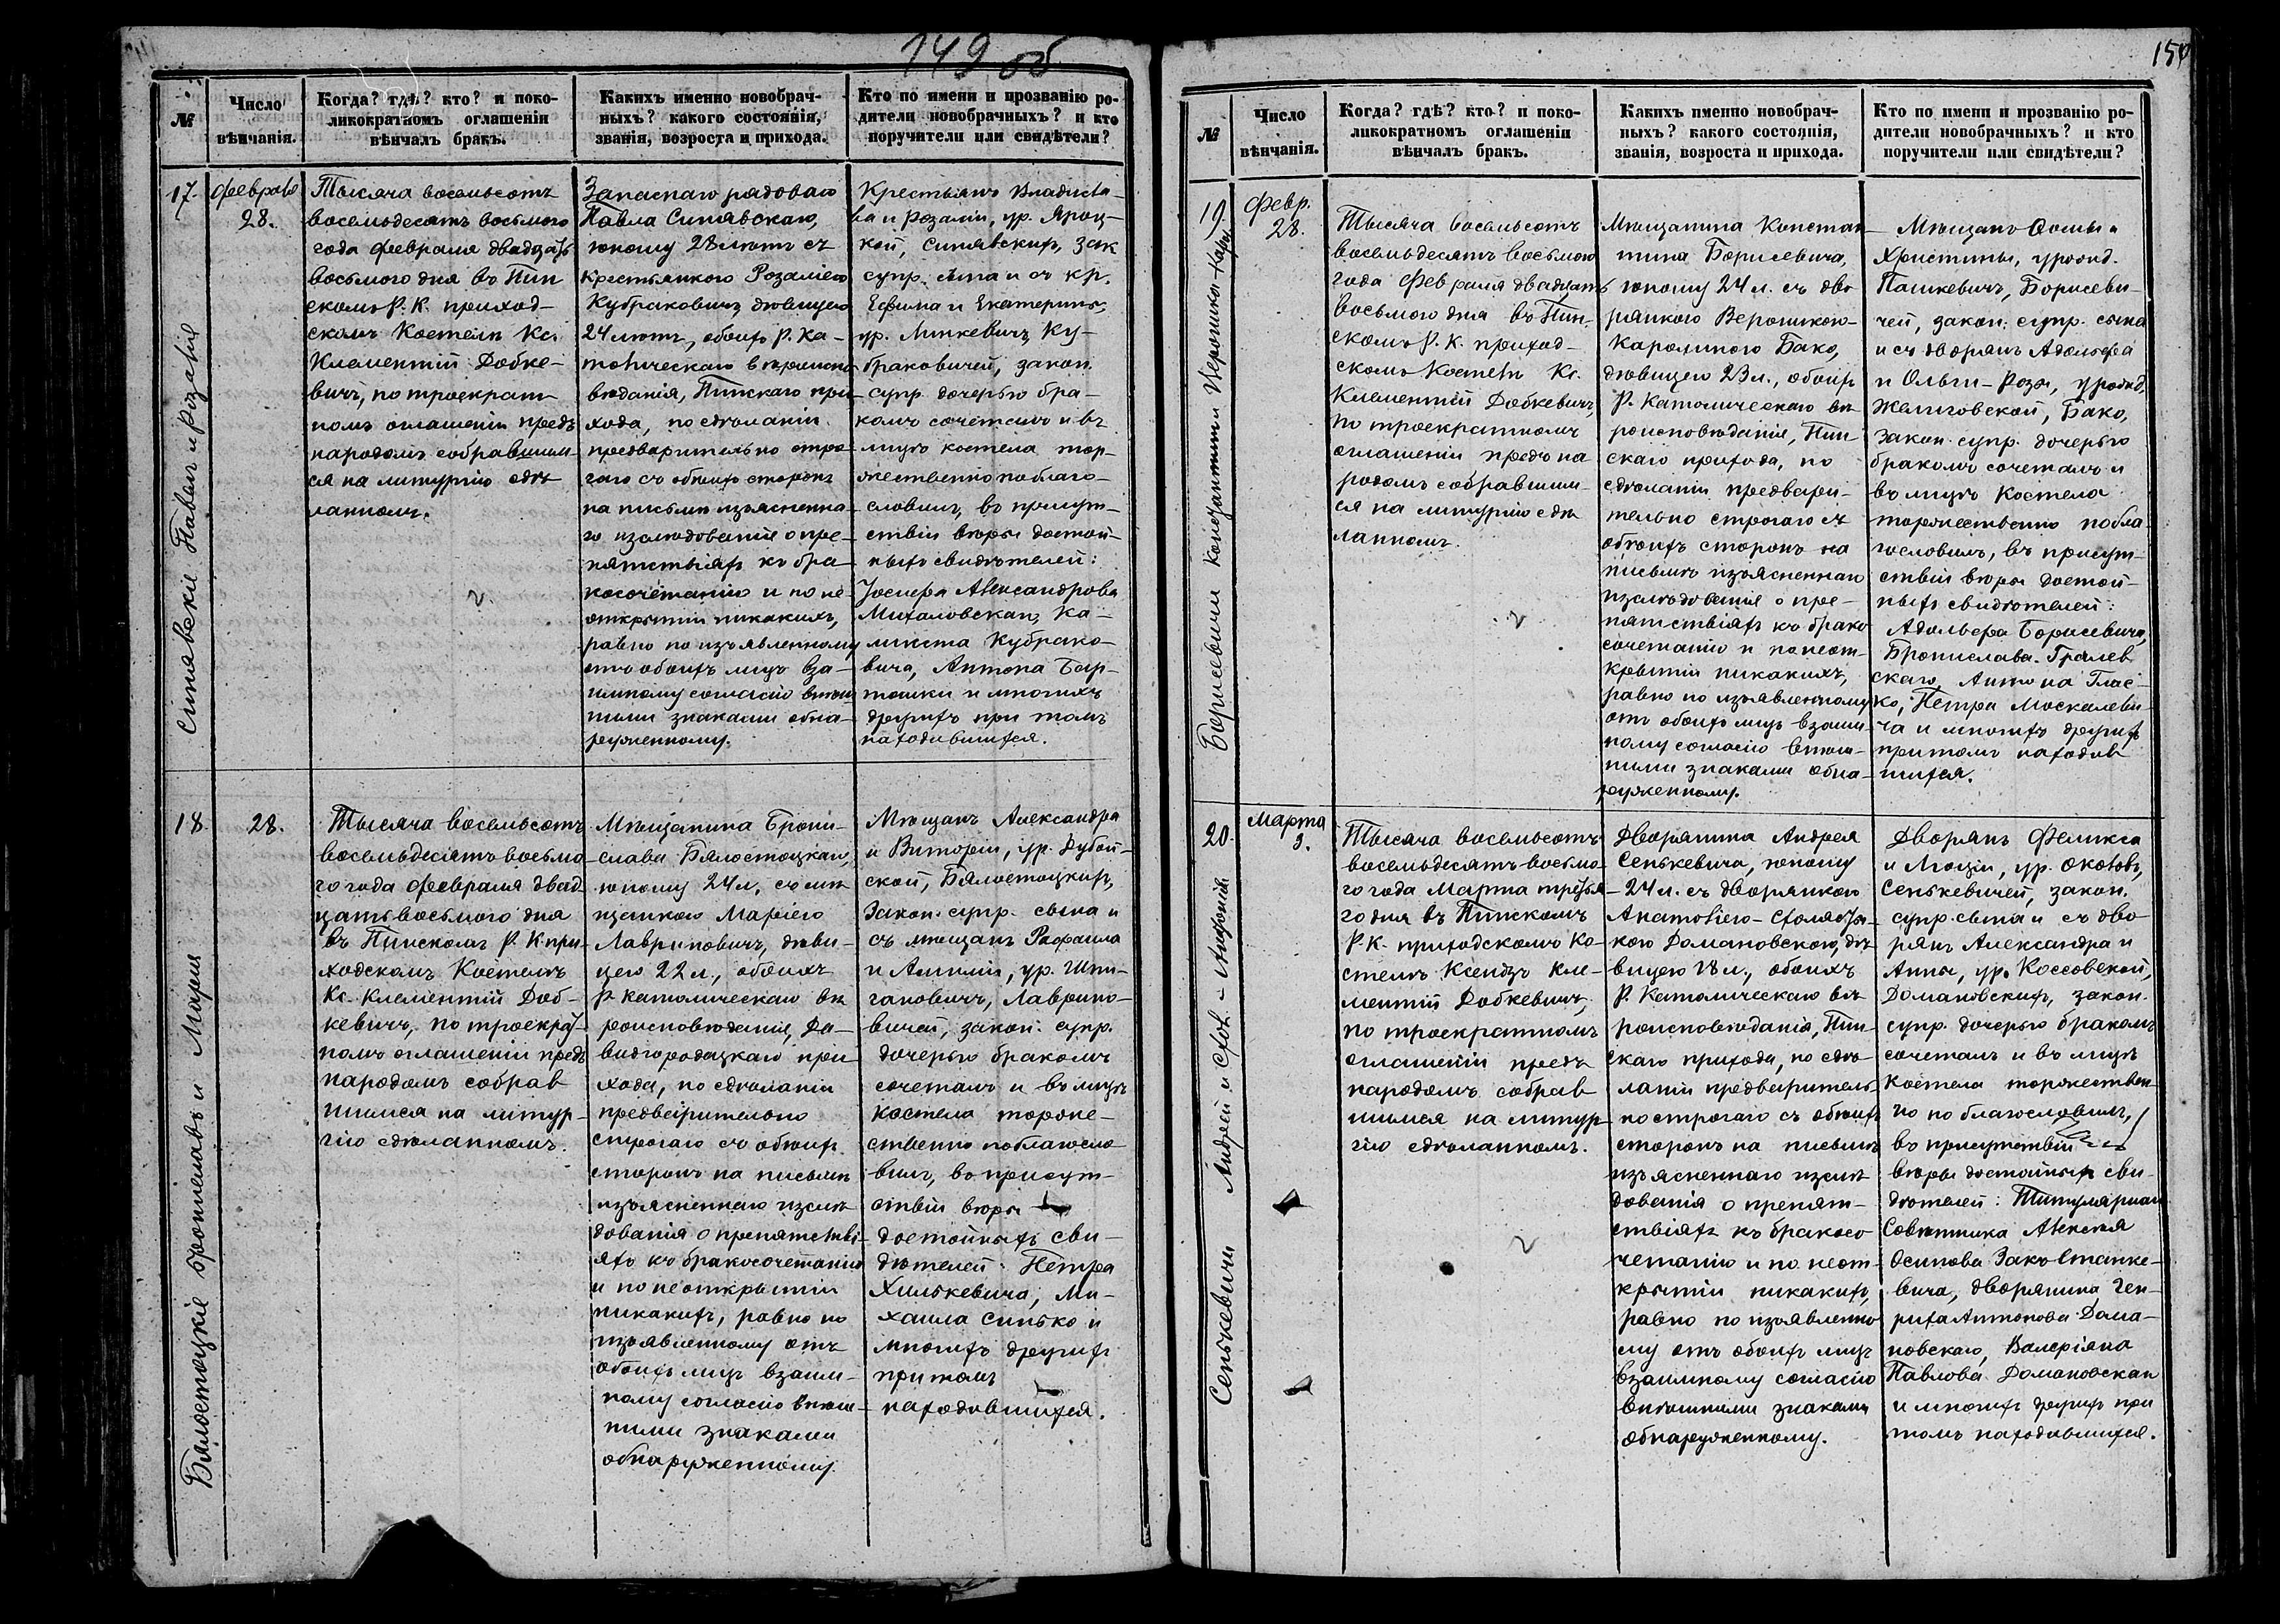 149 об
№
Число
вѣнчанія.
Когда? гдѣ? кто? и поко-
ликократномъ оглашеніи
вѣнчалъ бракъ.
Какихъ именно новобрач-
ныхъ? какого состоянія,
званія, возроста и прихода.
Кто по имени и прозванію ро-
дители новобрачныхъ? и кто
поручители или свидѣтели?
17.
Синявскіе Павелъ и Розалія
февраля
28.
Тысяча восемьсотъ
восемьдесятъ восьмого
года февраля двадцать
восьмого дня въ Пин
скомъ Р. К. приход-
скомъ Костелѣ Кс.
Климентій Добке-
вичъ, по троекрат
номъ оглашеніи предъ
народомъ собравшим-
ся на литургію сдѣ
ланномъ.
Запаснаго рядоваго
Павла Синявскаго,
юношу 28 лѣтъ съ
крестьянкою Розаліею
Кубраковичъ, дѣвицею
24 лѣтъ, обоихъ Р. Ка-
толическаго вѣроиспо
вѣданія, Пинскаго при
хода, по сдѣланіи
предварительно стро-
гаго съ обоихъ сторонъ
на письмѣ изъясненна-
го изслѣдованія о пре-
пятствіяхъ къ бра-
косочетанію и по не-
открытіи никакихъ,
равно по изъявленному
отъ обоихъ лицъ вза-
имному согласію внѣш
ними знаками обна-
руженному.
Крестьянъ Владисла-
ва и Розаліи, ур. Яроц-
кой, Синявскихъ, зак
супр. сына и съ кр.
Ефима и Екатерины,
ур. Линкевичъ, Ку-
браковичей, закон.
супр. дочерью бра-
комъ сочеталъ и въ
лицѣ костела тор-
жественно поблаго-
словилъ, въ присут-
ствіи вѣры достой-
ныхъ свидѣтелей:
Іосифа Александрова
Михаловскаго, Ка-
ликста Кубрако-
вича, Антона Бар-
тошки и многихъ
другихъ при томъ
находившихся.
18.
Бялостоцкіе Брониславъ и Марія
28.
Тысяча восемьсотъ
восемьдесятъ восьмо
го года февраля двад
цать восьмого дня
въ Пинскомъ Р. К. при-
ходскомъ Костелѣ
Кс. Климентій Доб-
кевичъ, по троекрат-
номъ оглашеніи предъ
народомъ собрав
шимся на литур-
гію сдѣланномъ.
Мѣщанина Брони-
слава Бялостоцкаго,
юношу 24 л., съ мѣ
щанкою Маріею
Лавриновичъ, дѣви-
цею 22 л., обоихъ
Р. Католическаго вѣ
роисповѣданія, Да-
видгородецкаго при
хода, по сдѣланіи
предварительно
строгаго съ обоихъ
сторонъ на письмѣ
изъясненнаго изслѣ
дованія о препятстві-
яхъ къ бракосочетанію
и по неоткрытіи
никакихъ, равно по
изъявленному отъ
обоихъ лицъ взаим-
ному согласію внѣш-
ними знаками
обнаруженному.
Мѣщанъ Александра
и Викторіи, ур. Дубой-
ской, Бялостоцкихъ,
закон. супр. сына и
съ мѣщанъ Рафаила
и Амиліи, ур. Шпи-
гановичъ, Лаврино-
вичей, закон. супр.
дочерью бракомъ
сочеталъ и въ лицѣ
костела торже-
ственно поблагосло-
вилъ, въ присут-
ствіи вѣры
достойныхъ сви-
дѣтелей: Петра
Хилькевича, Ми-
хаила Синько и
многихъ другихъ
при томъ
находившихся.
150
№
Число
вѣнчанія.
Когда? гдѣ? кто? и поко-
ликократномъ оглашеніи
вѣнчалъ бракъ.
Какихъ именно новобрач-
ныхъ? какого состоянія,
званія, возроста и прихода.
Кто по имени и прозванію ро-
дители новобрачныхъ? и кто
поручители или свидѣтели?
19.
Борисевичи Константинъ и Вероника-Кар.
Февр.
28.
Тысяча восемьсотъ
восемьдесятъ восьмого
года Февраля двадцать
восьмого дня въ Пин-
скомъ Р. К. приход-
скомъ Костелѣ Кс.
Климентій Добкевичъ,
по троекратномъ
оглашеніи предъ на
родомъ собравшим-
ся на литургію сдѣ
ланномъ.
Мѣщанина Констан
тина Борисевича,
юношу 24 л. съ дво
рянкою Вероникою-
Каролиною Бако,
дѣвицею 23 л., обоихъ
Р. Католическаго вѣ
роисповѣданія, Пин
скаго прихода, по
сдѣланіи предвари-
тельно строгаго съ
обоихъ сторонъ на
письмѣ изъясненнаго
изслѣдованія о пре-
пятствіяхъ къ брако
сочетанію и по неот-
крытіи никакихъ,
равно по изъявленному
отъ обоихъ лицъ взаим-
ному согласію внѣш-
ними знаками обна-
руженному.
Мѣщанъ Фомы и
Христины, урожд.
Пашкевичъ, Борисеви-
чей, закон. супр. сына
и съ дворянъ Адольфа
и Ольги-Розы, урожд.
Желиговской, Бако,
закон. супр. дочерью
бракомъ сочеталъ и
въ лицѣ Костела
торжественно побла-
гословилъ, въ присут-
ствіи вѣры достой-
ныхъ свидѣтелей:
Адольфа Борисевича,
Бронислава Гралев
скаго, Антона Глас-
ко, Петра Москалеви-
ча и многихъ другихъ
при томъ находив
шихся.
20.
Сенькевичи Андрей и
Марта
3.
Тысяча восемьсотъ
восемьдесятъ восьмо-
го года Марта третья-
го дня въ Пинскомъ
Р. К. приходскомъ Ко-
стелѣ Ксендзъ Кли-
ментій Добкевичъ,
по троекратномъ
оглашеніи предъ
народомъ собрав
шимся на литур
гію сдѣланномъ.
Дворянина Андрея
Сенькевича, юношу
24 л. съ дворянкою
кою Домановскою, дѣ
вицею 18 л., обоихъ
Р. Католическаго вѣ
роисповѣданія, Пин-
скаго прихода, по сдѣ
ланіи предваритель
но строгаго съ обоихъ
сторонъ на письмѣ
изъясненнаго изслѣ
дованія о препят-
ствіяхъ къ бракосо
четанію и по неот-
крытіи никакихъ,
равно по изъявленно
му отъ обоихъ лицъ
взаимному согласію
внѣшними знаками
обнаруженному.
Дворянъ Феликса
и Люціи, ур. Околовъ,
Сенькевичей, закон.
супр. сына и съ дво-
рянъ Александра и
Анны, ур. Коссовской,
Домановскихъ, закон.
супр. дочерью бракомъ
сочеталъ и въ лицѣ
Костела торжествен-
но поблагословилъ,
въ присутствіи
вѣры достойныхъ сви-
дѣтелей: Титулярнаго
Совѣтника Алексѣя
Осипова Закъ-Станке-
вича, дворянина Ген-
риха Антонова Дома-
новскаго, Валеріана
Павлова Домановскаго
и многихъ другихъ при
томъ находившихся.